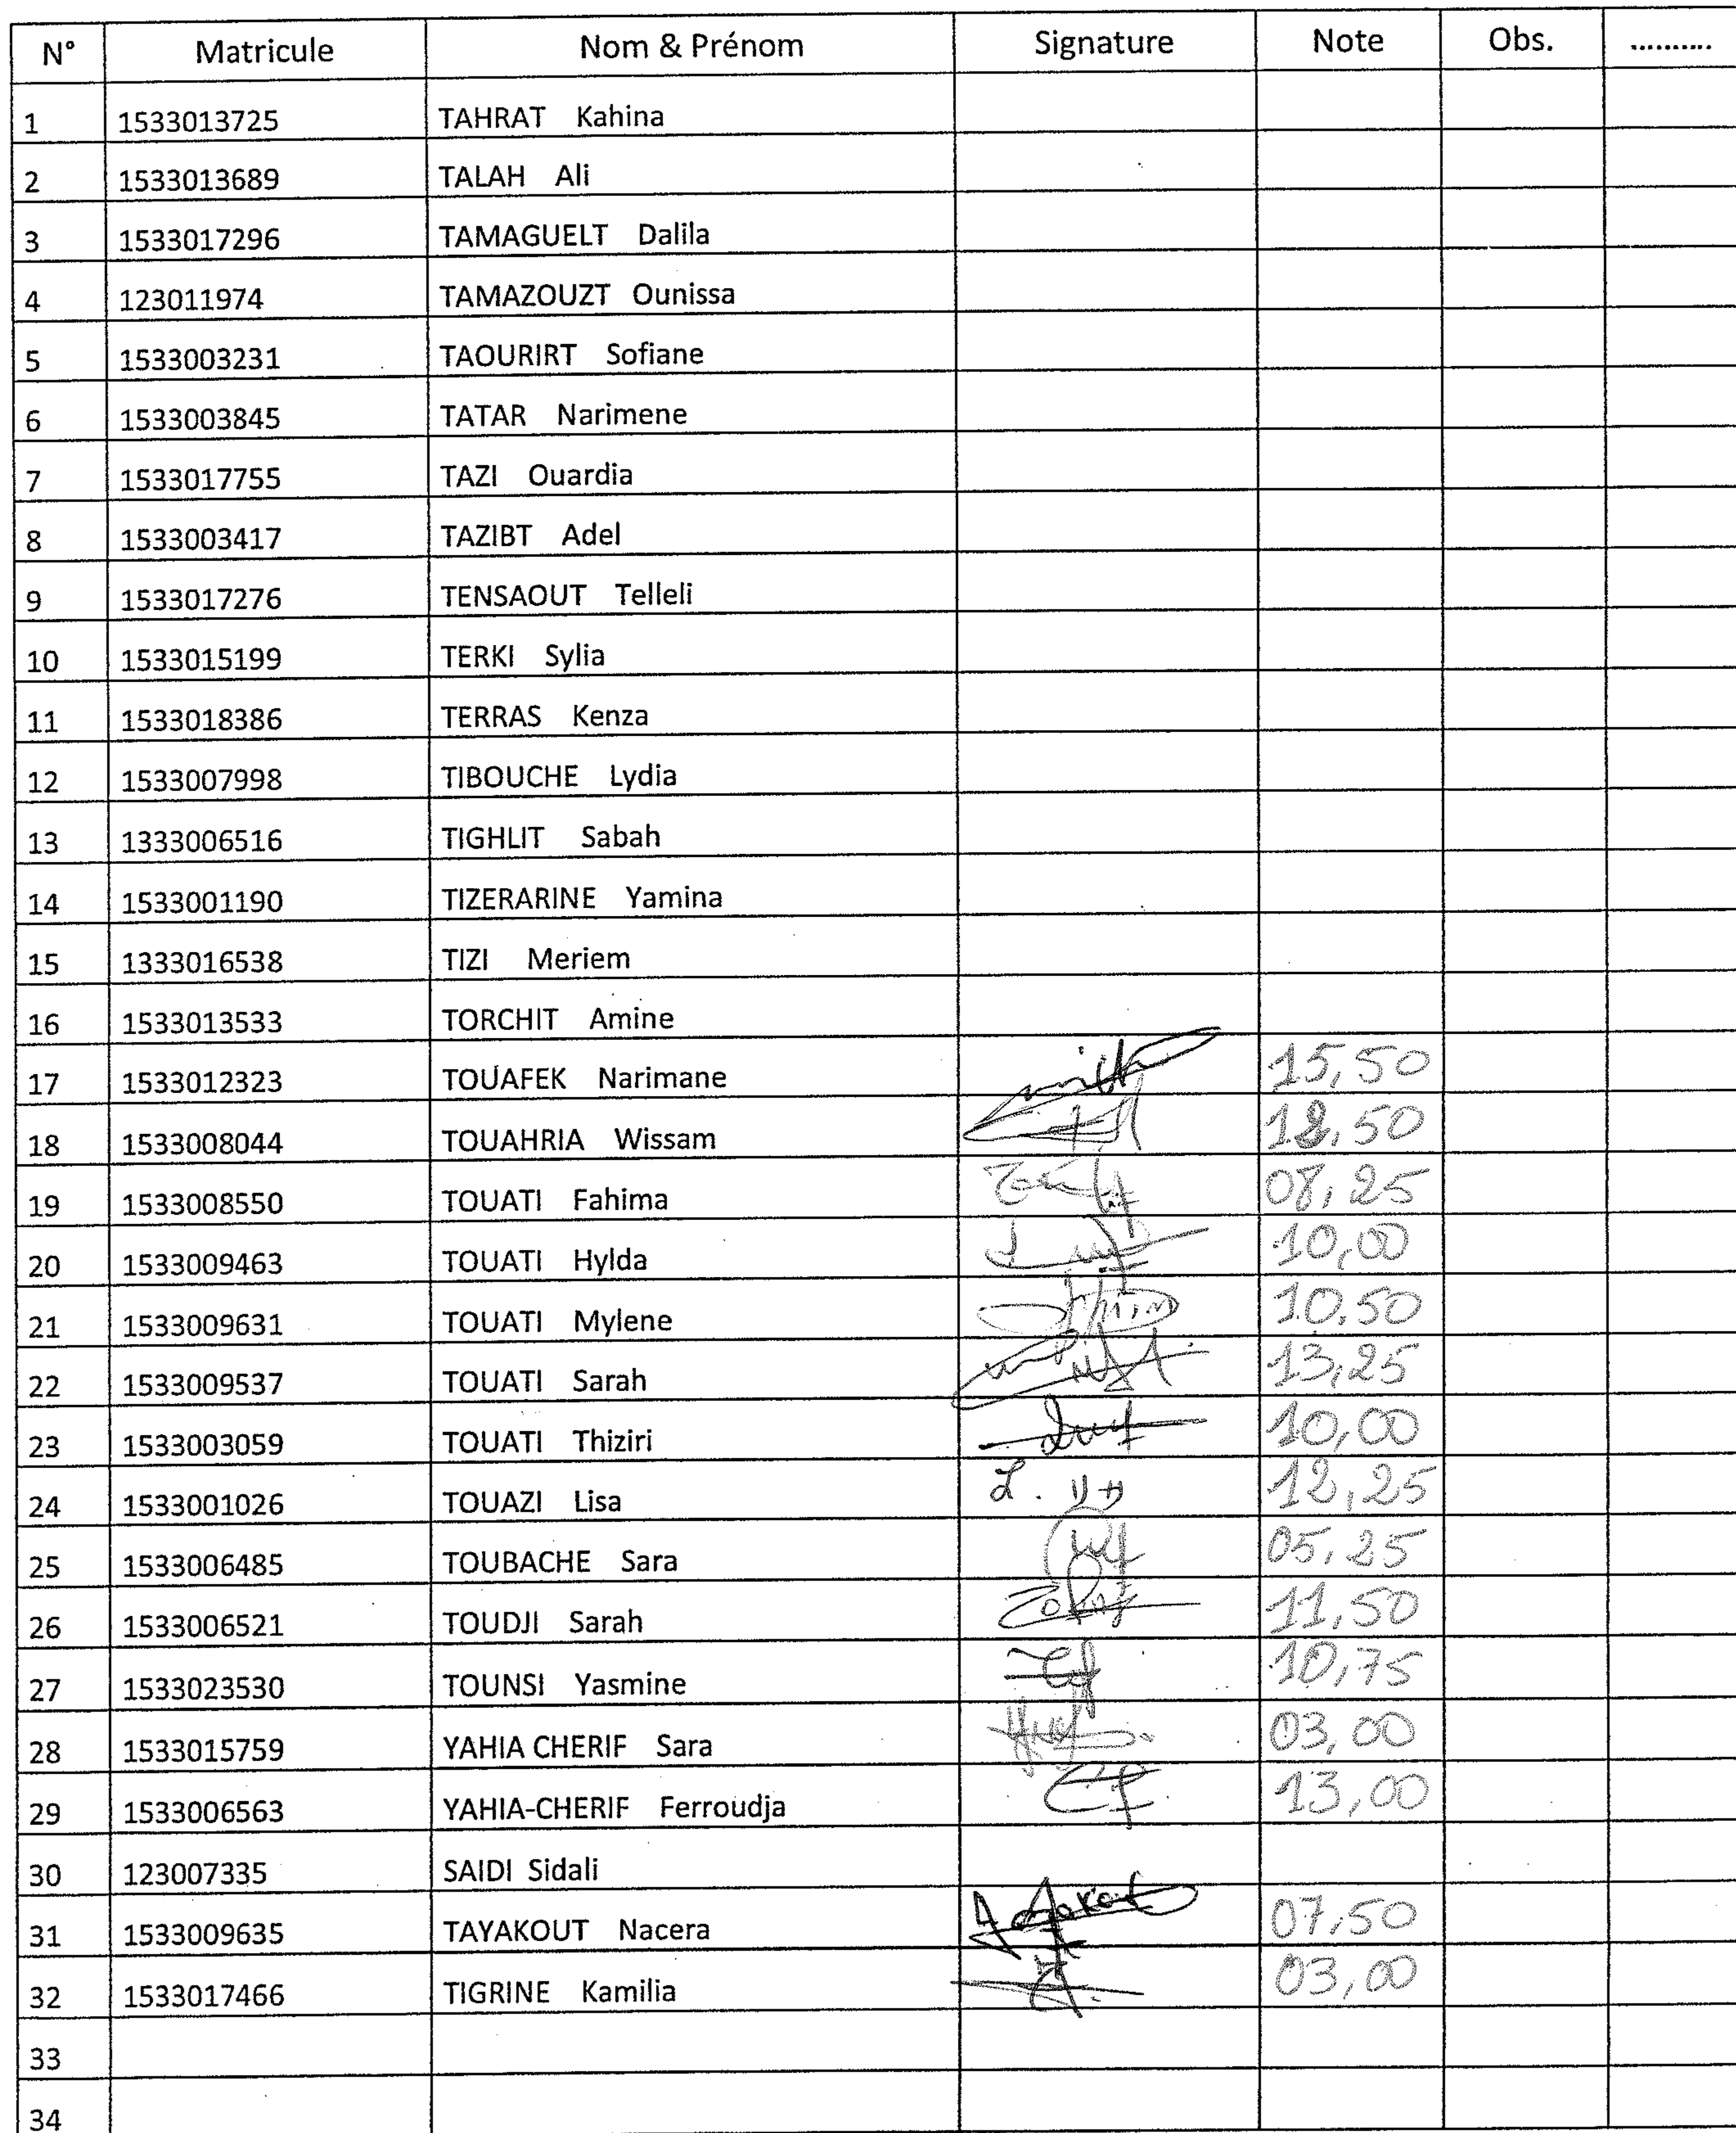 N° Matricule Nom & Prénom Signature Note Obs. ..........
1 1533013725 TAHRAT Kahina
2 1533013689 TALAH Ali
3 1533017296 TAMAGUELT Dalila
4 123011974 TAMAZOUZT Ounissa
5 1533003231 TAOURIRT Sofiane
6 1533003845 TATAR Narimene
7 1533017755 TAZI Ouardia
8 1533003417 TAZIBT Adel
9 1533017276 TENSAOUT Telleli
10 1533015199 TERKI Sylia
11 1533018386 TERRAS Kenza
12 1533007998 TIBOUCHE Lydia
13 1333006516 TIGHLIT Sabah
14 1533001190 TIZERARINE Yamina
15 1333016538 TIZI Meriem
16 1533013533 TORCHIT Amine
17 1533012323 TOUAFEK Narimane 15,50
18 1533008044 TOUAHRIA Wissam 12,50
19 1533008550 TOUATI Fahima 08,25
20 1533009463 TOUATI Hylda 10,00
21 1533009631 TOUATI Mylene 10,50
22 1533009537 TOUATI Sarah 13,25
23 1533003059 TOUATI Thiziri 10,00
24 1533001026 TOUAZI Lisa 12,25
25 1533006485 TOUBACHE Sara 05,25
26 1533006521 TOUDJI Sarah 11,50
27 1533023530 TOUNSI Yasmine 10,75
28 1533015759 YAHIA CHERIF Sara 03,00
29 1533006563 YAHIA-CHERIF Ferroudja 13,00
30 123007335 SAIDI Sidali
31 1533009635 TAYAKOUT Nacera 07,50
32 1533017466 TIGRINE Kamilia 03,00
33
34